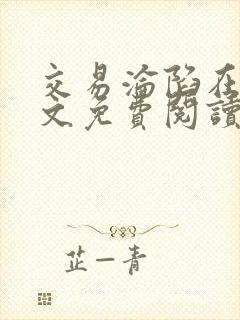 交易淪陷在
文免費閱讀
芷一青